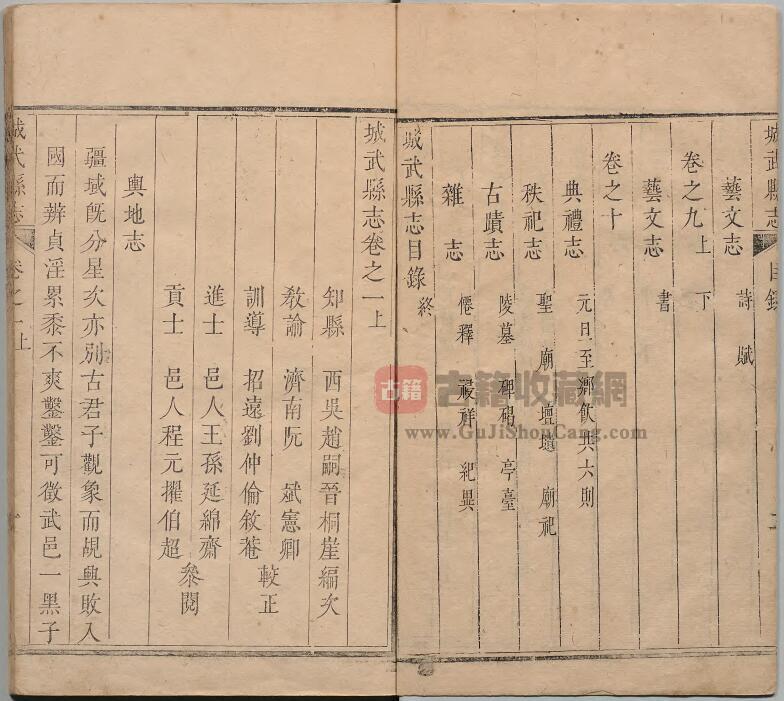 城武縣志 目錄
藝文志 詩 賦
卷之九 上 下
藝文志 書
卷之十
典禮志 元旦至鄉飲共六則
秩祀志 聖廟 壇壝 廟祀
古蹟志 陵墓 碑碣 亭臺
雜志 僊釋 祲祥 紀異
城武縣志目錄終
城武縣志卷之一上
知縣 西吳趙嗣晉桐崖編次
教諭 濟南阮 斌憲卿
訓導 招遠劉仲倫敘菴
較正
進士 邑人王孫延綿齋
貢士 邑人程元擢伯超
叅閱
輿地志
疆域旣分星次亦別古君子觀象而覘興敗入
國而辨貞淫累黍不爽鑿鑿可徵武邑一黑子
城武縣志 卷之一上
古籍 古籍收藏網
www.GuJiShouCang.com